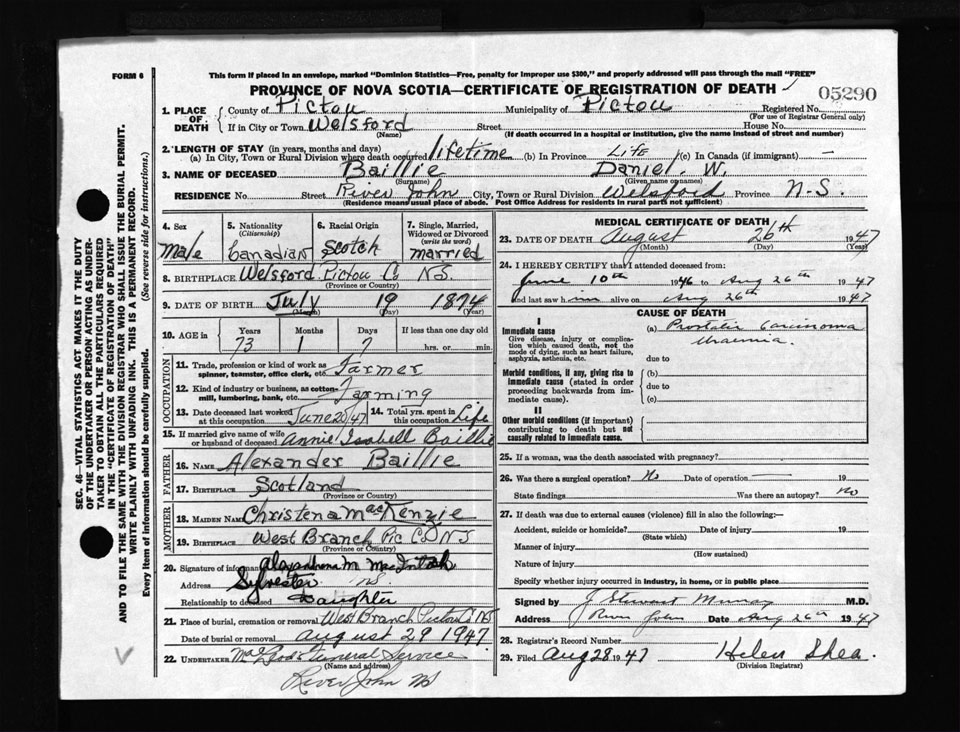 FORM 6
This form if placed in an envelope, marked "Dominion Statistics—Free, penalty for improper use $300," and properly addressed will pass through the mail "FREE"
PROVINCE OF NOVA SCOTIA—CERTIFICATE OF REGISTRATION OF DEATH
05290
1. PLACE OF DEATH County of Pictou Municipality of Pictou Registered No.
(For use of Registrar General only)
If in City or Town Welsford Street House No.
(Name) (If death occurred in a hospital or institution, give the name instead of street and number)
2. LENGTH OF STAY (in years, months and days)
(a) In City, Town or Rural Division where death occurred lifetime (b) In Province Life (c) In Canada (if immigrant) —
3. NAME OF DECEASED Baillie Daniel. W.
(Surname) (Given name or names)
RESIDENCE No. Street River John City, Town or Rural Division Welsford Province N-S.
(Residence means usual place of abode. Post Office Address for residents in rural parts not sufficient)
4. Sex Male
5. Nationality (Citizenship) Canadian
6. Racial Origin Scotch
7. Single, Married, Widowed or Divorced (write the word) married
8. BIRTHPLACE Welsford Pictou Co NS.
(Province or Country)
9. DATE OF BIRTH July 19 1874
(Month) (Day) (Year)
10. AGE in Years Months Days If less than one day old
73 1 7 hrs. or min.
OCCUPATION
11. Trade, profession or kind of work as spinner, teamster, office clerk, etc. Farmer
12. Kind of industry or business, as cotton-mill, lumbering, bank, etc. Farming
13. Date deceased last worked at this occupation June 20/47
14. Total yrs. spent in this occupation Life
15. If married give name of wife or husband of deceased Annie Isabell Baillie
FATHER
16. NAME Alexander Baillie
17. BIRTHPLACE Scotland
(Province or Country)
MOTHER
18. MAIDEN NAME Christena MacKenzie
19. BIRTHPLACE West Branch Pic Co NS
(Province or Country)
20. Signature of informant M MacIntosh
Address Sylvester NS
Relationship to deceased Daughter
21. Place of burial, cremation or removal West Branch Pictou Co NS
Date of burial or removal august 29 1947
22. UNDERTAKER MacLeods Funeral Service
(Name and address)
River John NS
MEDICAL CERTIFICATE OF DEATH
23. DATE OF DEATH August 26th 1947
(Month) (Day) (Year)
24. I HEREBY CERTIFY that I attended deceased from:
June 10th 1946 to Aug 26th 1947
and last saw him alive on Aug 26th 1947
CAUSE OF DEATH
I
Immediate cause
Give disease, injury or complication which caused death, not the mode of dying, such as heart failure, asphyxia, asthenia, etc.
(a) Prostatic Carcinoma
Uraemia.
due to
Morbid conditions, if any, giving rise to immediate cause (stated in order proceeding backwards from immediate cause).
(b)
due to
(c)
II
Other morbid conditions (if important) contributing to death but not causally related to immediate cause.
25. If a woman, was the death associated with pregnancy?
26. Was there a surgical operation? No Date of operation — 19
State findings Was there an autopsy? no
27. If death was due to external causes (violence) fill in also the following:—
Accident, suicide or homicide? Date of injury 19
(State which)
Manner of injury
(How sustained)
Nature of injury
Specify whether injury occurred in industry, in home, or in public place
Signed by J Stewart Murray M.D.
Address River John Date Aug 26th 1947
28. Registrar's Record Number
29. Filed Aug 28 1947 Helen Shea.
(Division Registrar)
SEC. 46—VITAL STATISTICS ACT MAKES IT THE DUTY
OF THE UNDERTAKER OR PERSON ACTING AS UNDER-
TAKER TO OBTAIN ALL THE PARTICULARS REQUIRED
IN THE "CERTIFICATE OF REGISTRATION OF DEATH"
AND TO FILE THE SAME WITH THE DIVISION REGISTRAR WHO SHALL ISSUE THE BURIAL PERMIT.
WRITE PLAINLY WITH UNFADING INK. THIS IS A PERMANENT RECORD.
Every item of information should be carefully supplied. (See reverse side for instructions.)